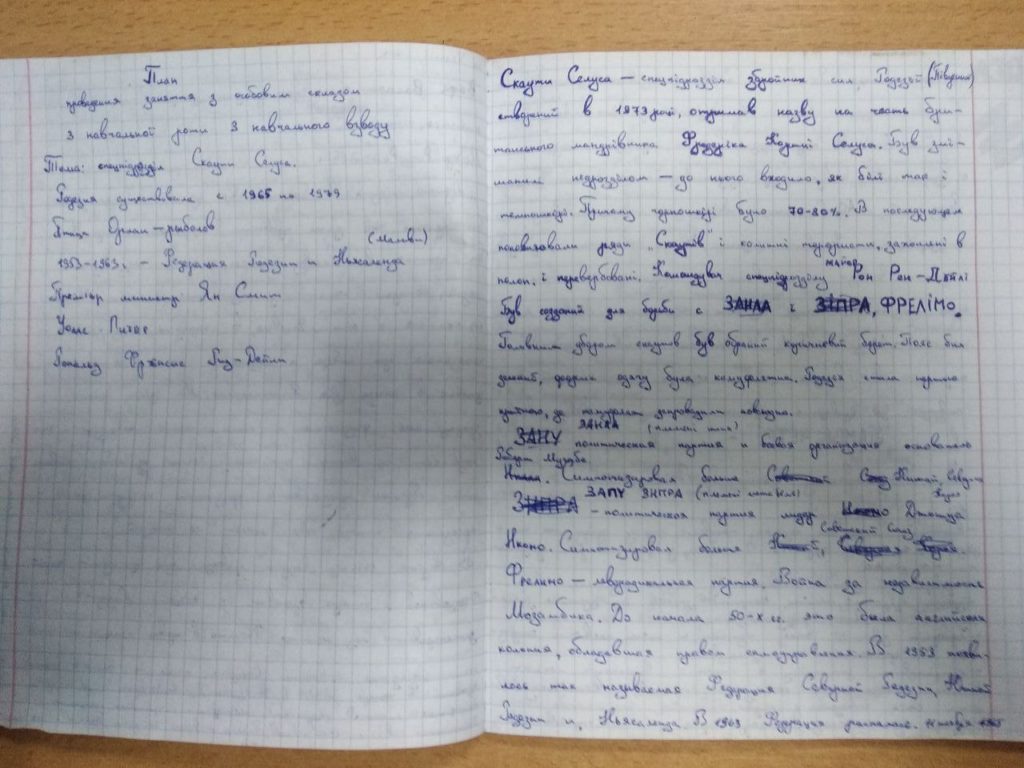 План
проведення заняття з особовим складом
3 навчальної роти 3 навчального взводу
Тема: спецпідрозділ Скаути Селуса.
Родезия существовала с 1965 по 1979
Птица Орлан-рыболов
(Малави)
1953-1963г. - Федерация Родезии и Ньясаленда
Премьер министр Ян Смит
Уолс
Рональд Френсис Рид-Дейли
Скаути Селуса — спецпідрозділ збройних сил Родезії (Південної)
створений в 1973 році, отримав назву на честь бри-
танського мандрівника Фредеріка Селуса. Був змі-
шаним підрозділом — до нього входило, як білі так і
темношкірі. Причому чорношкірі було 70-80%. В последующем
поповнювали ряди "Скаутів" і колишні терористи, захоплені в
полон, і перевербовані. Командував спецпідрозділу майор Рон Рей-Дейлі
Був созданий для борьби с ЗАНЛА і ЗІПРА, ФРЕЛІМО.
Головним убором скаутів був обраний коричневий берет. Пояс був
зелений, одягу була камуфляжна. Родезія стала первою
країною, де камуфляж запровадили повсюдно.
ЗАНЛА (племені шона)
ЗАНУ политическая партия и боевая организация основатель
Роберт Мугабе
Симпатизировал больше Китай, Северная
Корея
ЗАПУ ЗИПРА (племені)
ЗИПРА - политическая партия лидер Джошуа
Советский Союз
Нкомо. Симпатизировал больше
Фрелимо — леворадикальная партия. Война за независимость
Мозамбика. До начала 50-х гг. это была английская
колония, обладавшая правом самоуправления. В 1953 появи-
лось так называемая Федерация Северной Родезии, Южной
Родезии и Ньясаленда. В 1963 Федерация распалась. 11 ноября 1965